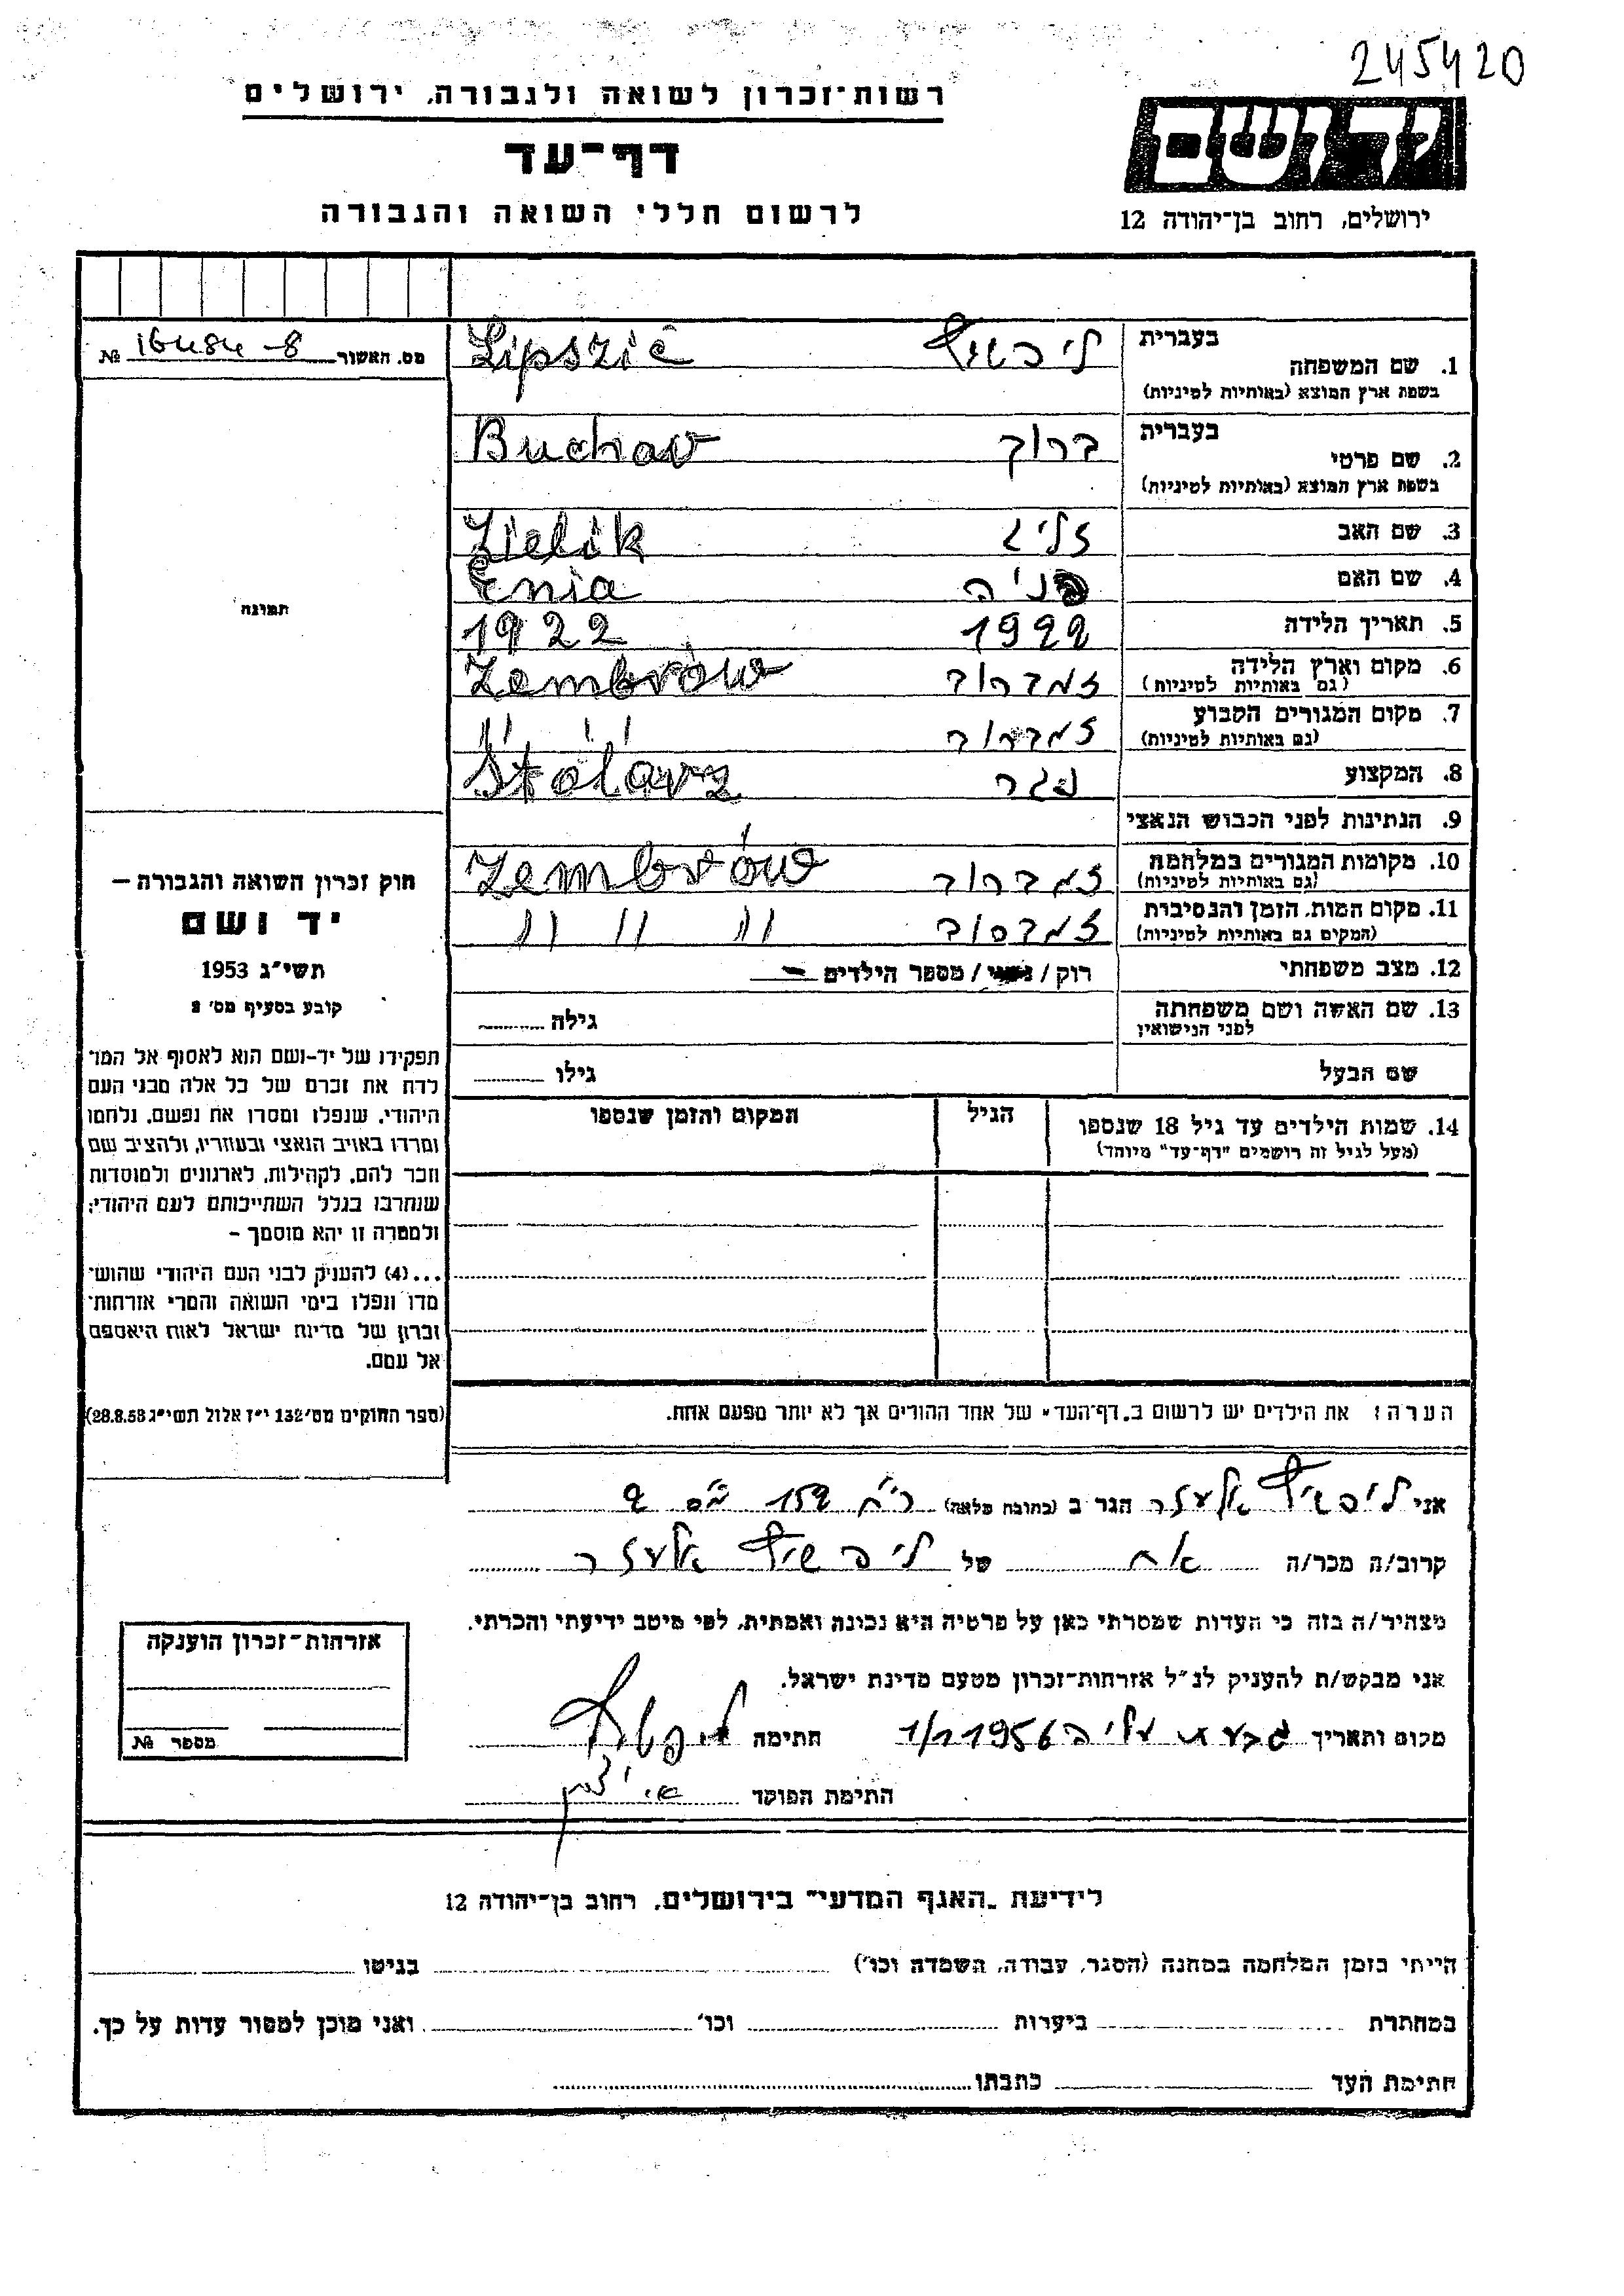 245420
רשות־זכרון לשואה ולגבורה, ירושלים
דף־עד
לרשום חללי השואה והגבורה
יד ושם
ירושלים, רחוב בן־יהודה 12
מס. האשור 16484-8 №
בעברית
1. שם המשפחה
בשפת ארץ המוצא (באותיות לטיניות)
ליפשיץ Lipszic
בעברית
2. שם פרטי
בשפת ארץ המוצא (באותיות לטיניות)
ברוך Buchav
3. שם האב זליג Zielik
4. שם האם פניה Enia
5. תאריך הלידה 1922 1922
6. מקום וארץ הלידה
(גם באותיות לטיניות) זמברוב Zembrów
7. מקום המגורים הקבוע
(גם באותיות לטיניות) זמברוב " " "
8. המקצוע נגר Stolarz
9. הנתינות לפני הכבוש הנאצי
10. מקומות המגורים במלחמה
(גם באותיות לטיניות) זמברוב Zembrów
11. מקום המות, הזמן והנסיבות
(המקום גם באותיות לטיניות) זמברוב " " "
12. מצב משפחתי רוק / נשוי / מספר הילדים –
13. שם האשה ושם משפחתה
לפני הנישואין
גילה
שם הבעל גילו
14. שמות הילדים עד גיל 18 שנספו
(מעל לגיל זה רושמים "דף־עד" מיוחד)
הגיל
המקום והזמן שנספו
תמונה
חוק זכרון השואה והגבורה —
יד ושם
תשי"ג 1953
קובע בסעיף מס' 2
תפקידו של יד-ושם הוא לאסוף אל המו־
לדת את זכרם של כל אלה מבני העם
היהודי, שנפלו ומסרו את נפשם, נלחמו
ומרדו באויב הנאצי ובעוזריו, ולהציב שם
וזכר להם, לקהילות, לארגונים ולמוסדות
שנחרבו בגלל השתייכותם לעם היהודי;
ולמטרה זו יהא מוסמך –
...(4) להעניק לבני העם היהודי שהוש־
מדו ונפלו בימי השואה והמרי אזרחות־
זכרון של מדינת ישראל לאות היאספם
אל עמם.
(ספר החוקים מס' 132 י"ז אלול תשי"ג 28.8.53)
הערה: את הילדים יש לרשום ב„דף־העד" של אחד ההורים אך לא יותר מפעם אחת.
אני ליפשיץ אלעזר הגר ב (כתובת מלאה) 159
קרוב/ה מכר/ה אח של ליפשיץ אלעזר
מצהיר/ה בזה כי העדות שמסרתי כאן על פרטיה היא נכונה ואמתית, לפי מיטב ידיעתי והכרתי.
אני מבקש/ת להעניק לנ"ל אזרחות־זכרון מטעם מדינת ישראל.
מקום ותאריך גבעת עליה 1956 חתימה
חתימת הפוקד
אזרחות־זכרון הוענקה
מספר №
לידיעת „האגף המדעי" בירושלים, רחוב בן־יהודה 12
הייתי בזמן המלחמה במחנה (הסגר, עבודה, השמדה וכו') בגיטו
במחתרת ביערות וכו' ואני מוכן למסור עדות על כך.
חתימת העד כתבתו